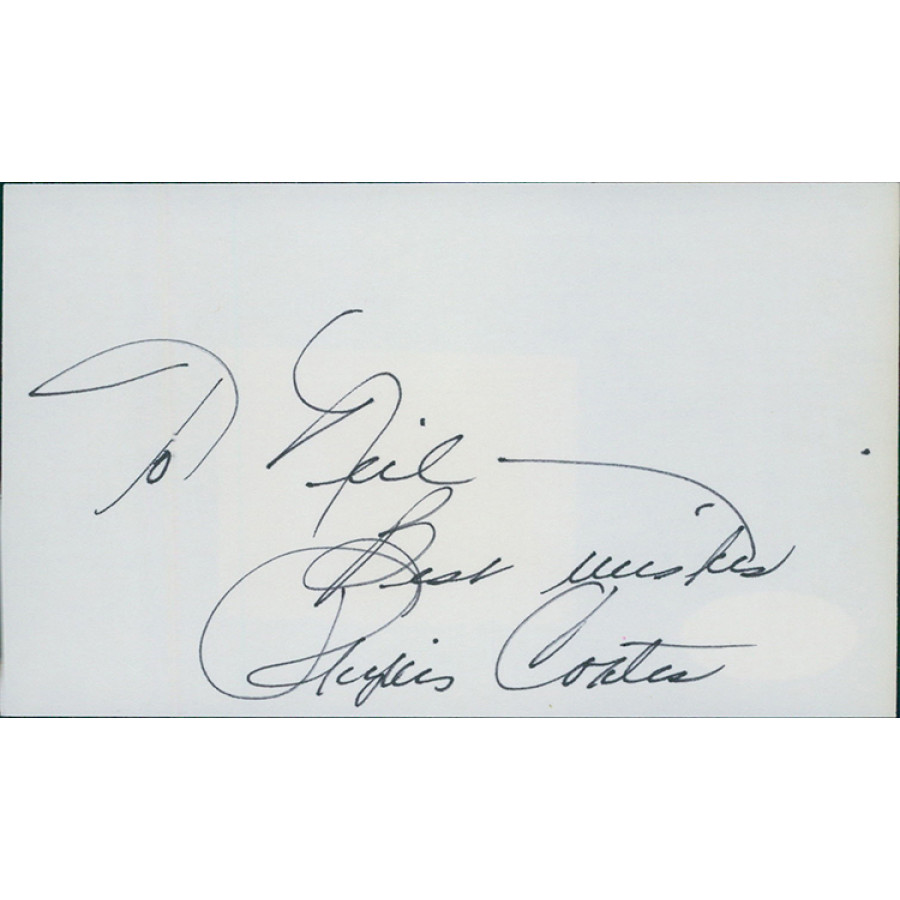 To Neil —
Best wishes
Phyllis Coates